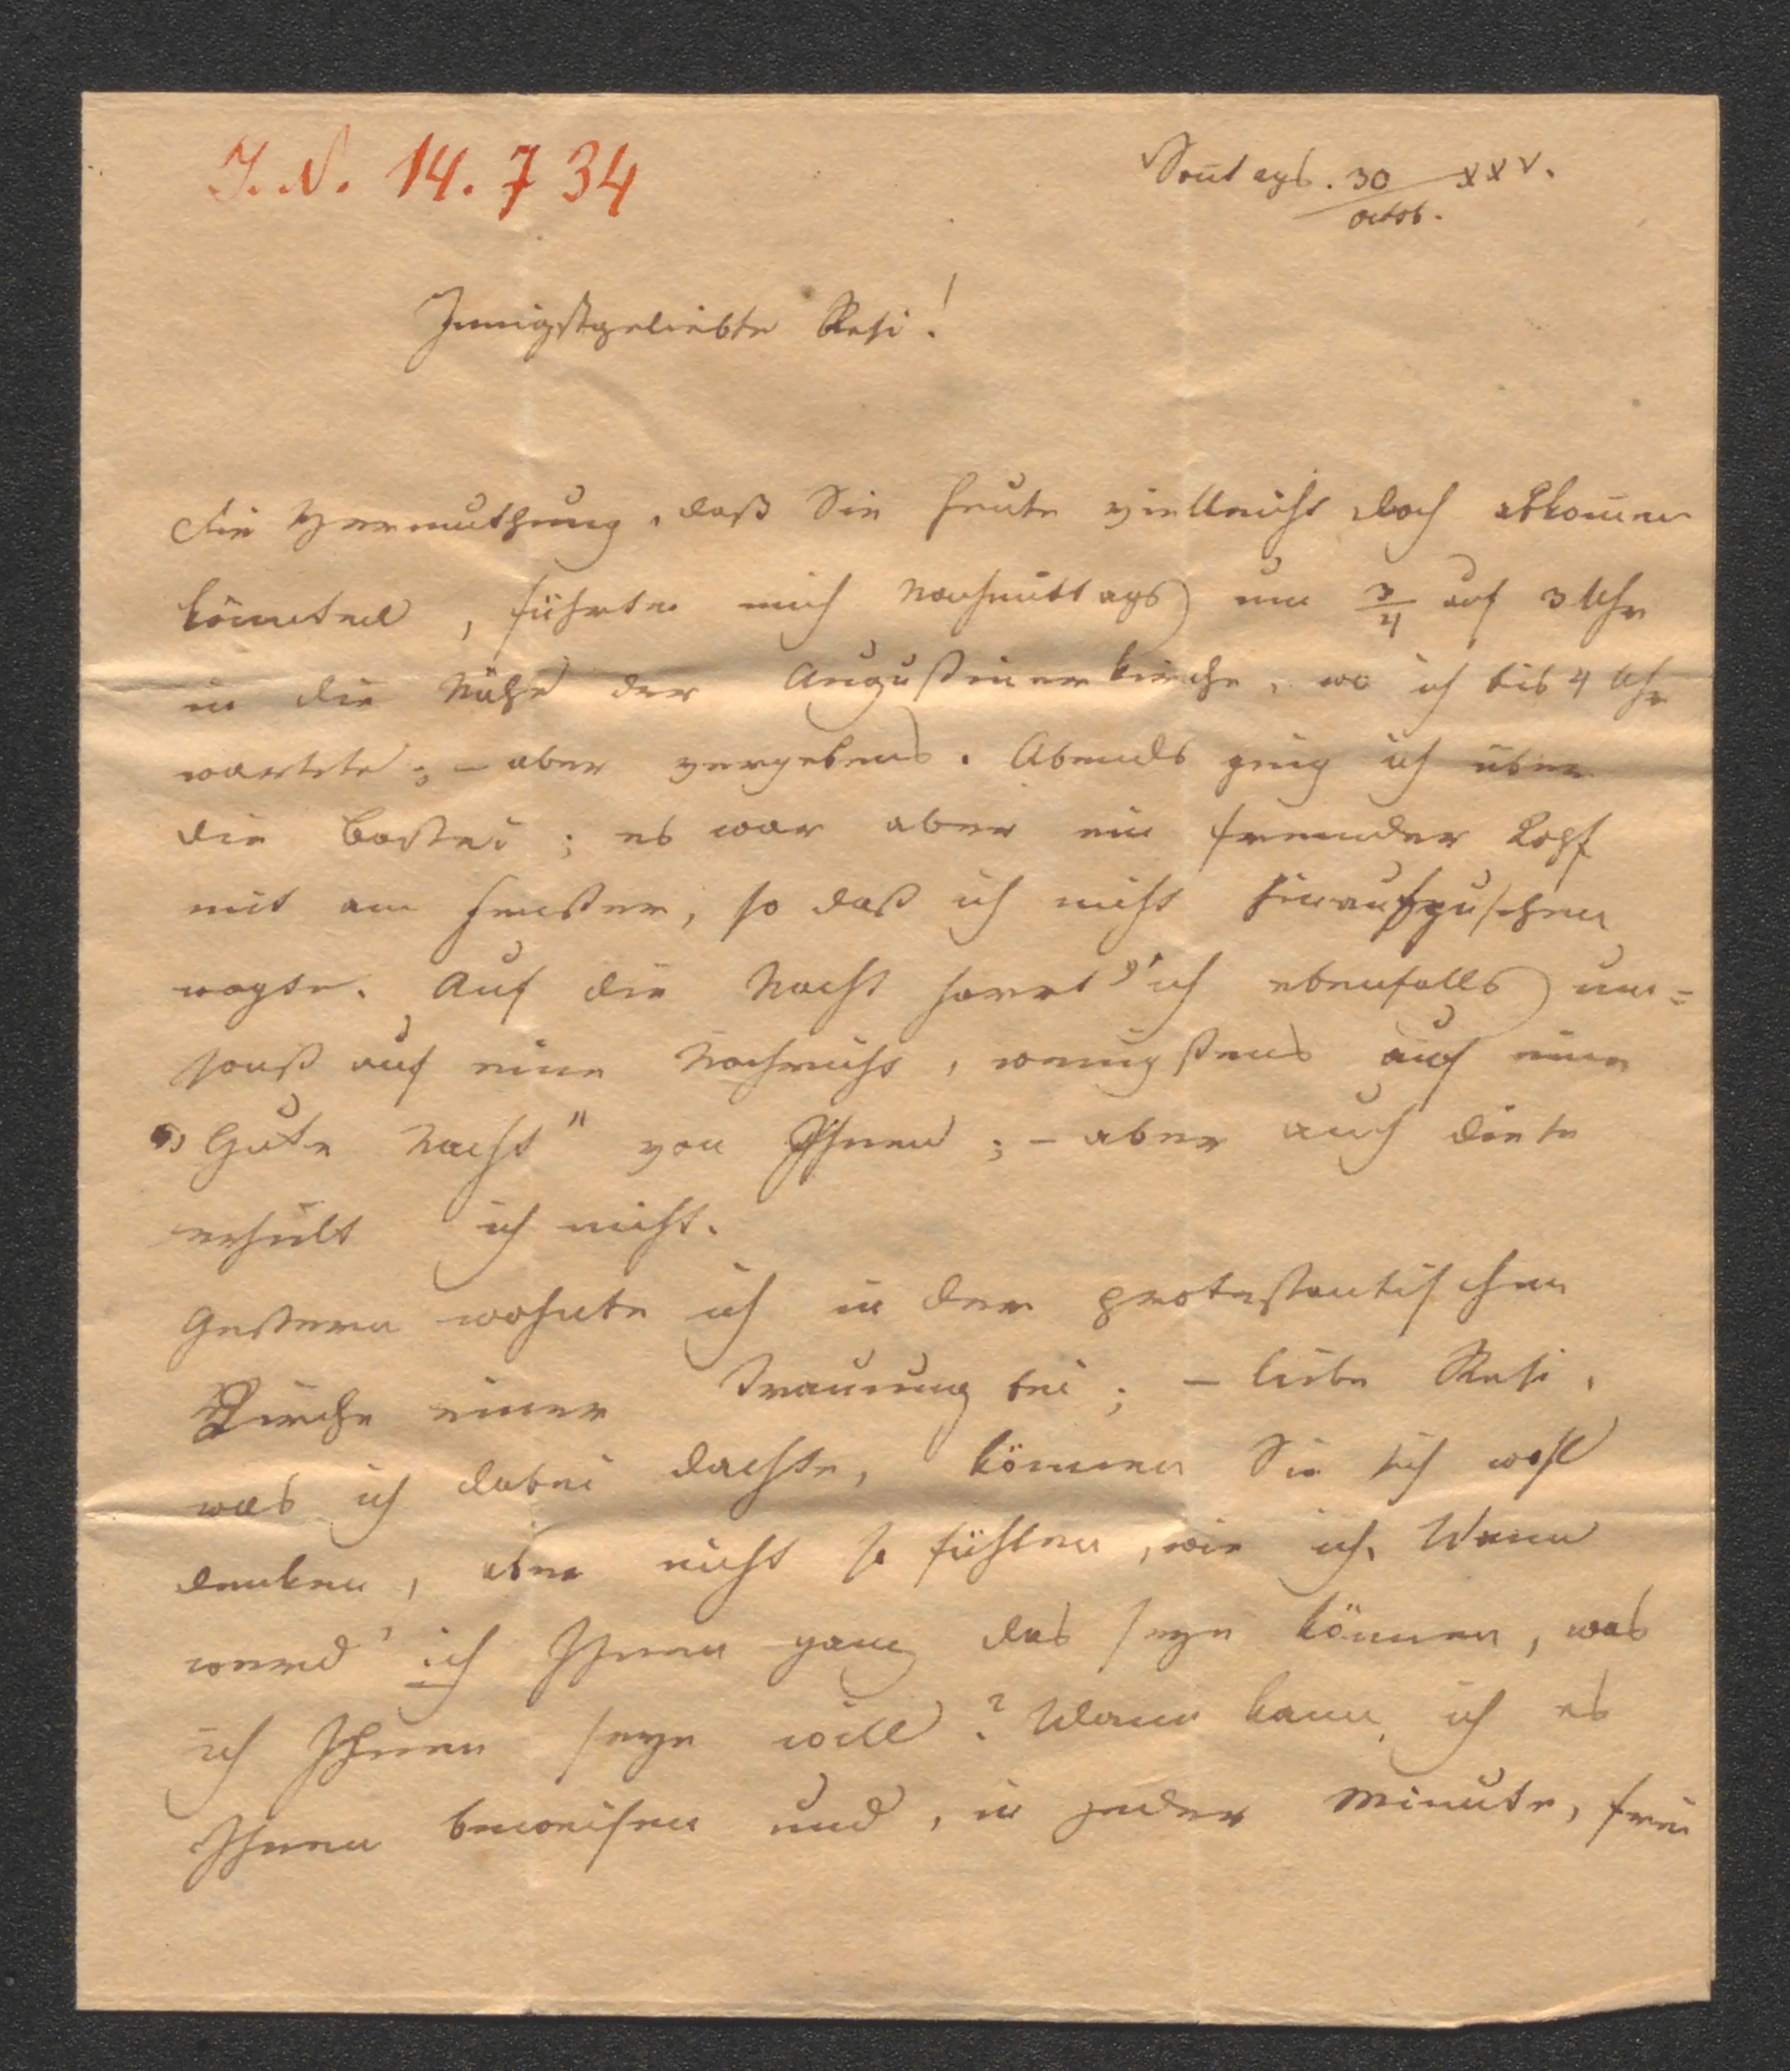 I. N. 14.734
Sontags. 30/octob. XXV.
Innigstgeliebte Resi!
die Vermuthung, daß Sie heute vielleicht doch abkom̅en
könnten, führte mich Nachmittags um 3/4 auf 3 Uhr
in die Nähe der Augustinerkirche, wo ich bis 4 Uhr
wartete; – aber vergebens. Abends ging ich über
die Bastei; es war aber ein fremder Kopf
mit am Fenster, so daß ich nicht hinaufzusehen
wagte. Auf die Nacht harrt' ich ebenfalls um=
sonst auf eine Nachricht, wenigstens auf eine
„Gute Nacht" von Ihnen; – aber auch diese
erhielt ich nicht.
Gestern wohnte ich in der protestantischen
Kirche einer Trauung bei; – liebe Resi,
was ich dabei dachte, können Sie sich wohl
denken, aber nicht so fühlen, wie ich. Wann
werd' ich Ihnen ganz das seyn können, was
ich Ihnen seyn will? Wann kann ich es
Ihnen beweisen und, in jeder Minute, frei